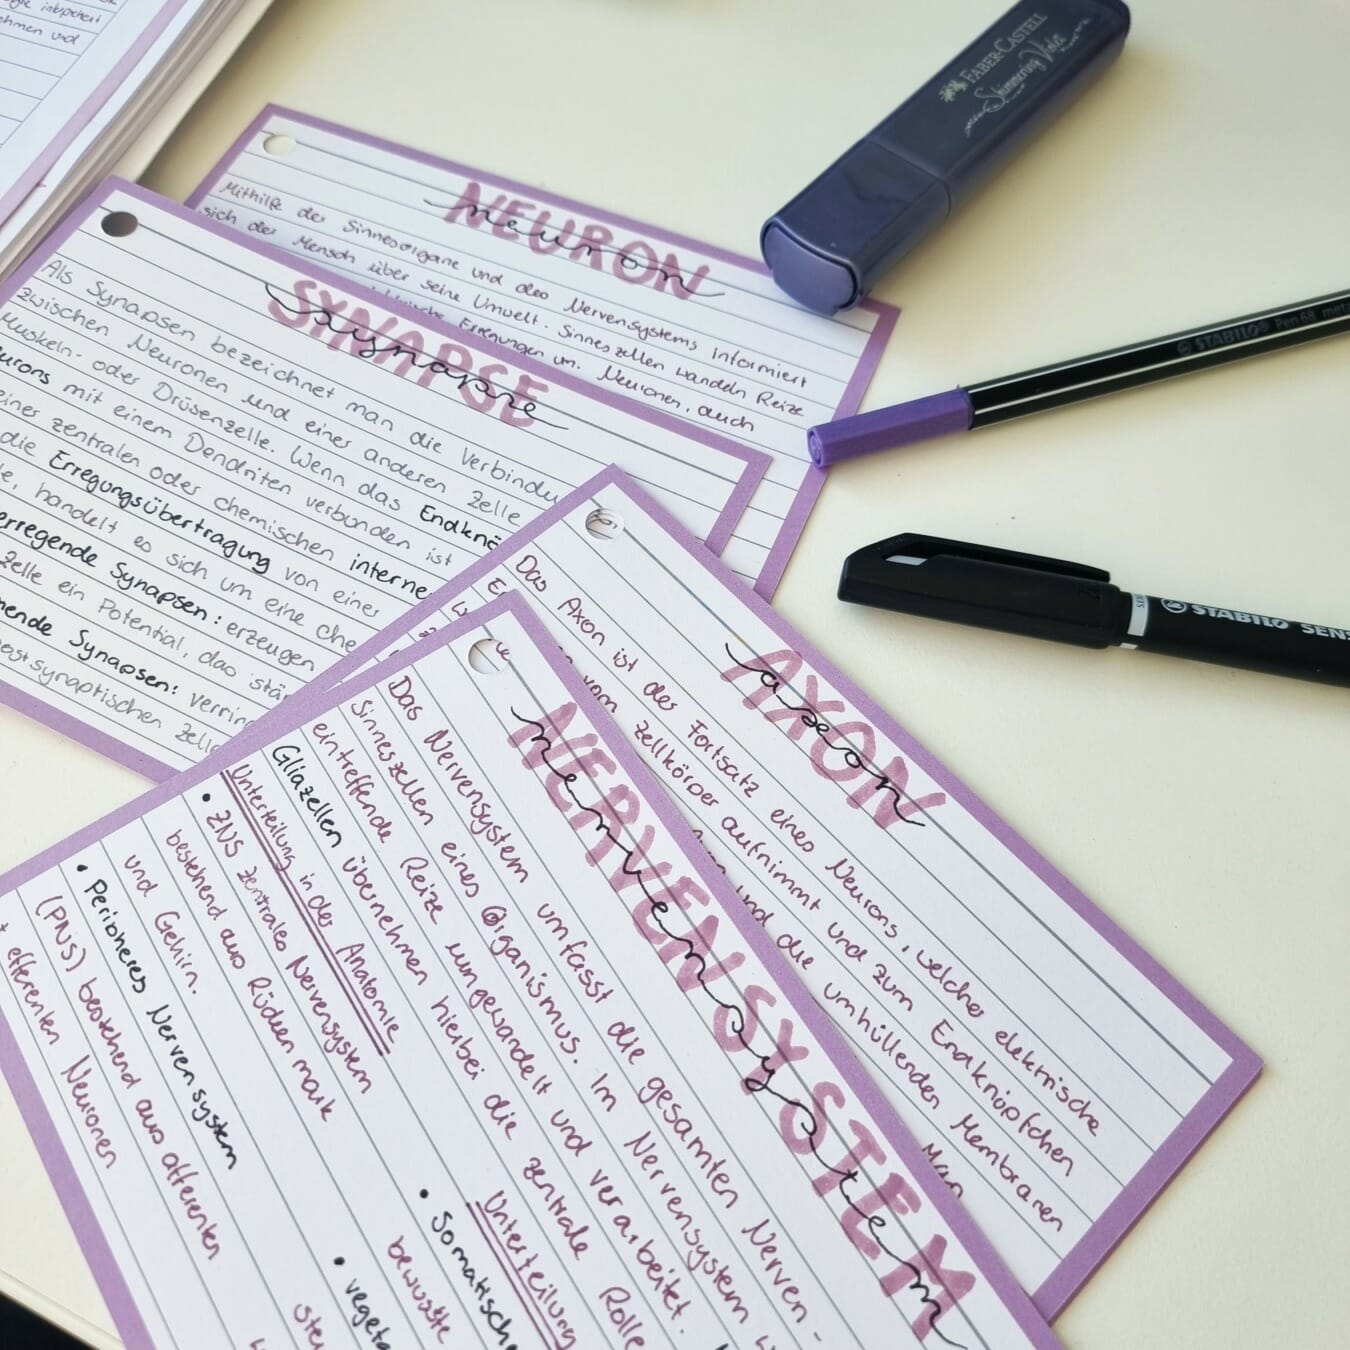 NEURON
neuron
Mithilfe der Sinnesorgane und des Nervensystems informiert
sich der Mensch über seine Umwelt. Sinneszellen wandeln Reize
Erregungen um. Neuronen, auch
SYNAPSE
synapse
Als Synapsen bezeichnet man die Verbindu
zwischen Neuronen und einer anderen Zelle
Muskel- oder Drüsenzelle. Wenn das Endknö
eurons mit einem Dendriten verbunden ist
einer zentralen oder chemischen interne
die Erregungsübertragung von einer
le, handelt es sich um eine che
erregende Synapsen: erzeugen
Zelle ein Potential, das stär
mende Synapsen: verrin
postsynaptischen Zelle
AXON
axon
Das Axon ist der Fortsatz eines Neurons, welcher elektrische
vom Zellkörper aufnimmt und zum Endknöpfchen
und die umhüllenden Membranen
Man
NERVENSYSTEM
nervensystem
Das Nervensystem umfasst die gesamten Nerven-
Sinneszellen eines Organismus. Im Nervensystem w
eintreffende Reize umgewandelt und verarbeitet.
Gliazellen übernehmen hierbei die zentrale Rolle
Unterteilung in der Anatomie
• ZNS zentrales Nervensystem
bestehend aus Rückenmark
und Gehirn.
• Peripheres Nervensystem
(PNS) bestehend aus afferenten
+ efferenten Neuronen
Unterteilung
• Somatische
bewusste
• vegeta
steu
FABER-CASTELL
Shimmering Violet
STABILO® Pen 68 meta
STABILO SENS